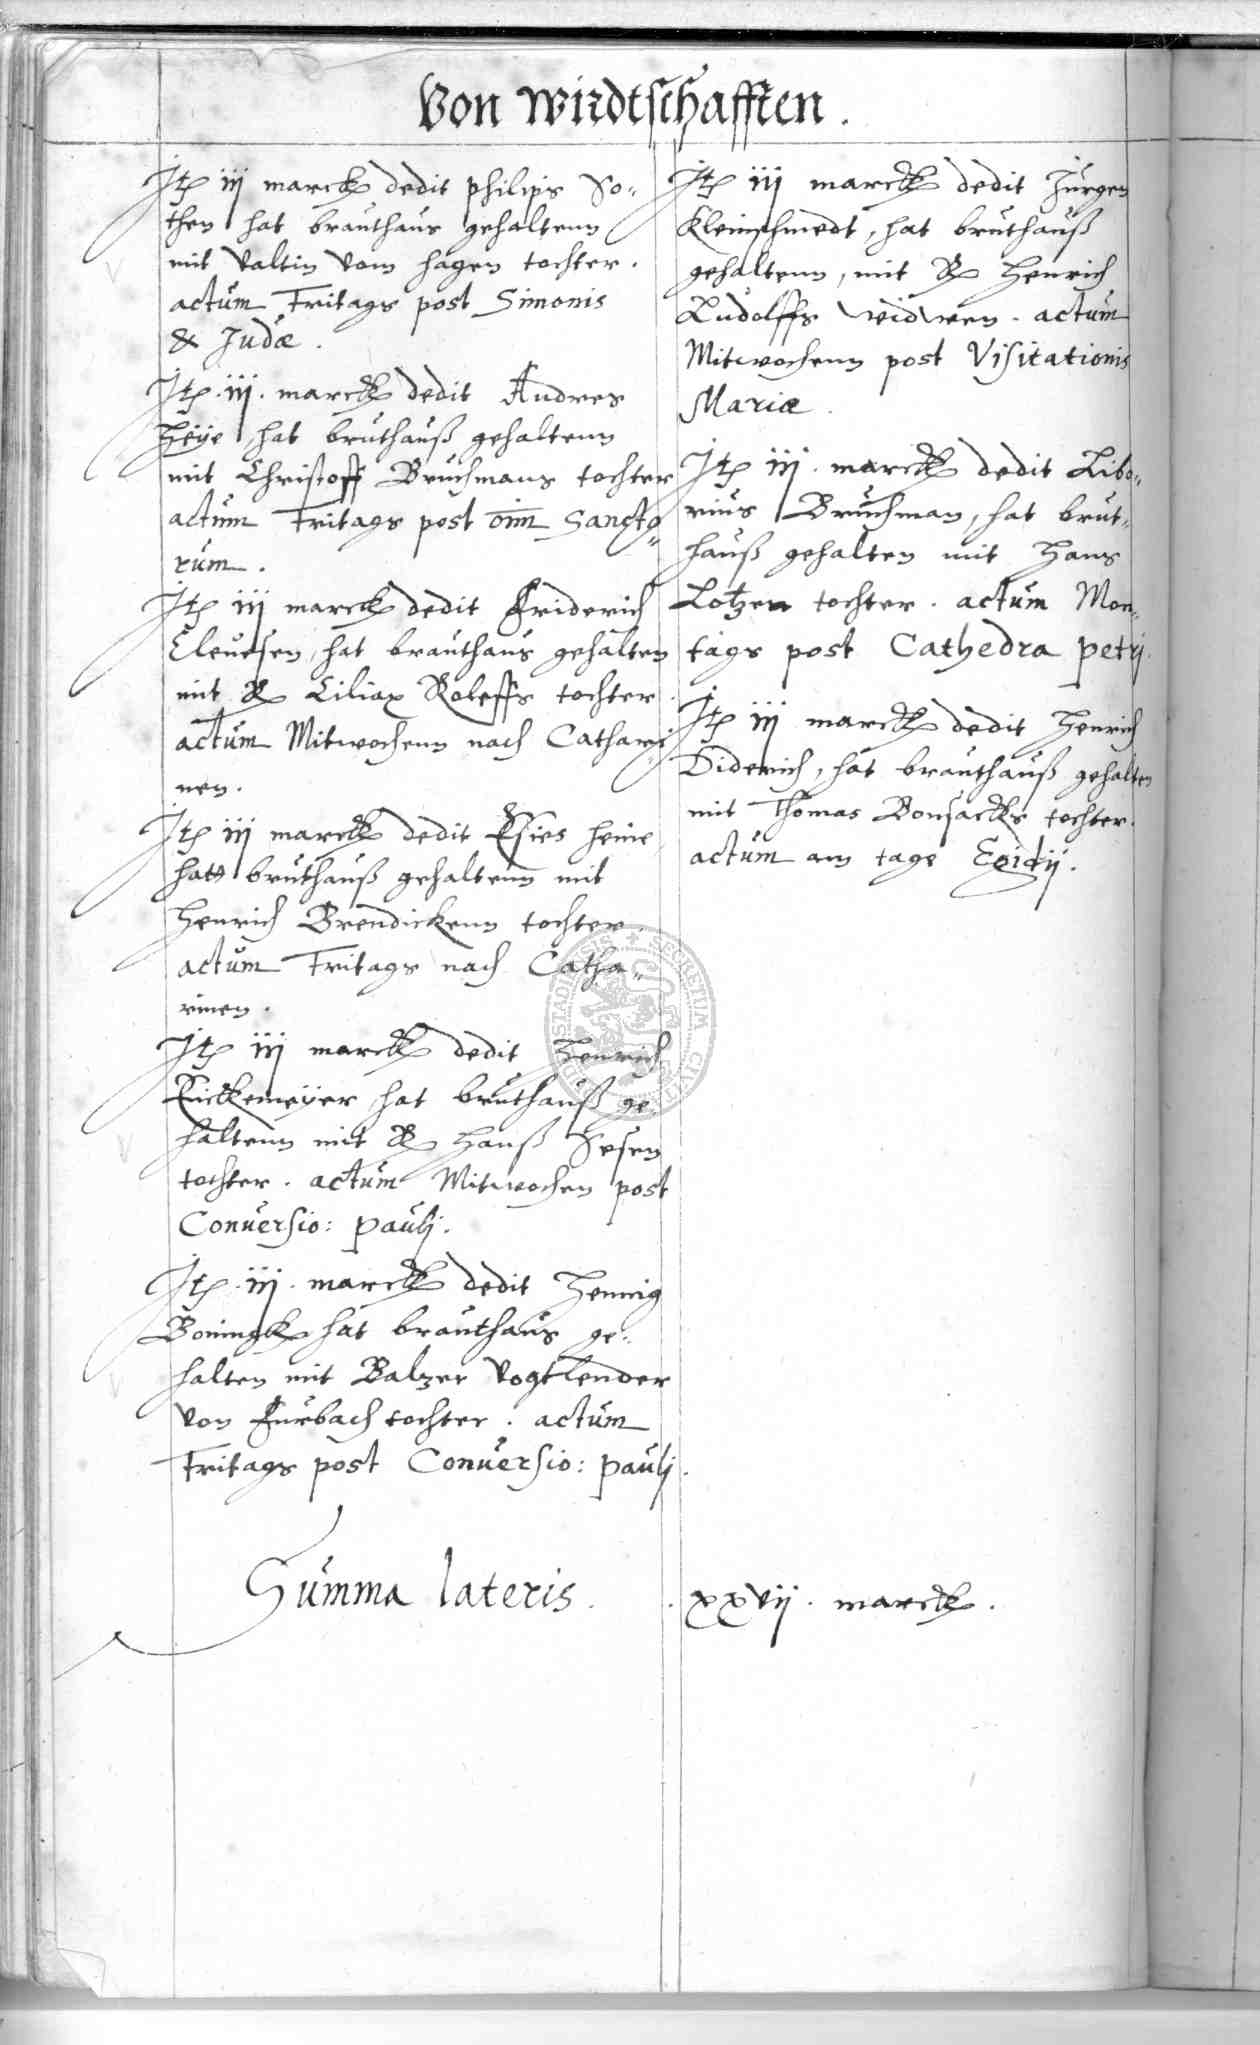 Von wirdtschafften.
Itz iij marck dedit philips So-
then hat brauthaus gehaltenn
mit Valtin Vom hagen tochter.
actum Fritags post Simonis
& Judæ.
Itz .iij. marck dedit Andres
Heÿe hat bruthauß gehaltenn
mit Christoff Bruchmans tochter
actum Fritags post oim Sancto-
rum.
Itz iij marck dedit Friderich
Eleuesen, hat brauthaus gehalten
mit Ciliax Roleffs tochter.
actum Mitwochenn nach Cathari
nen.
Itz iij marck dedit Esies heine
hatt bruthauß gehaltenn mit
Henrich Brendickenn tochter.
actum Fritags nach Catha-
rinen.
Itz iij marck dedit Henrich
Rickemeÿer hat bruthauß ge-
haltenn mit Hanß Sesen
tochter. actum Mitwochen post
Conuersio: paulj.
Itz .iij. marck dedit Hennig
Boningk hat brauthaus ge-
halten mit Balzer Vogtlender
von Furbach tochter. actum
Fritags post Conuersio: paulj.
Itz iij marck dedit Jurgen
Kleinschmedt, hat bruthauß
gehaltenn, mit Henrich
Ludolffs widwen. actum
Mitwochenn post Visitationis
Mariæ.
Itz iij. marck dedit Libo-
rius Bruchman, hat brut-
hauß gehalten mit Hans
Lotzen tochter. actum Mon-
tags post Cathedra petrj.
Itz iij marck dedit Henrich
Diderich, hat brauthauß gehalten
mit Thomas Bonsacks tochter.
actum am tage Egidij.
Summa lateris. xxvij. marck.
SECRETUM CIVITATIS